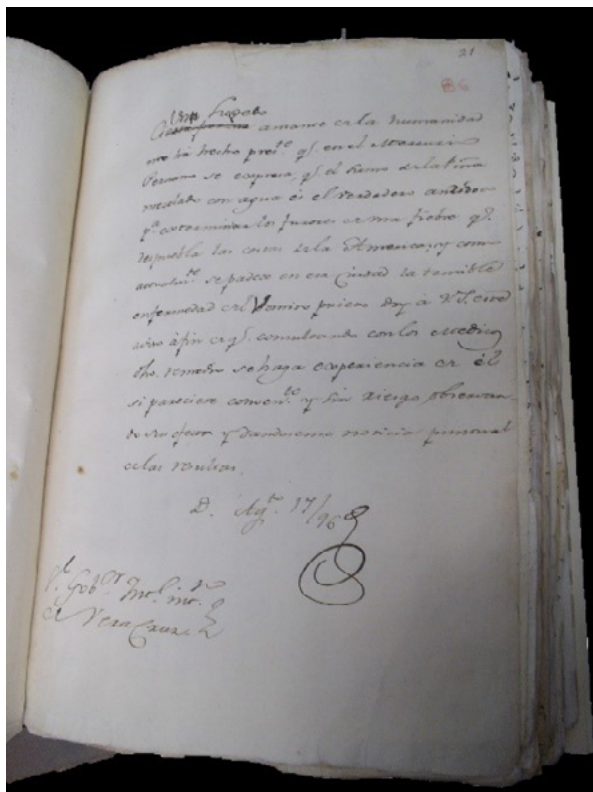 21
Un Sugeto
amante de la humanidad
me ha hecho pres.te q.e en el Mercurio
Peruano se expresa, q.e el sumo de la Piña
mesclado con agua es el verdadero antidoto
p.a exterminar los furores de una fiebre q.e
despuebla las costas de la America; y como
actualm.te se padece en esa Ciudad la terrible
enfermedad del Vomito prieto doy à V.S. este
aviso à fin de q.e consultando con los Medicos
dho. remedio se haga experiencia de èl
si pareciese conven.te y sin riesgo observan
do sus efectos y dandoseme noticia puntual
de las resultas.
D. Ag.to 17/96
S.r Gob.or Int.e int.o
de Vera Cruz